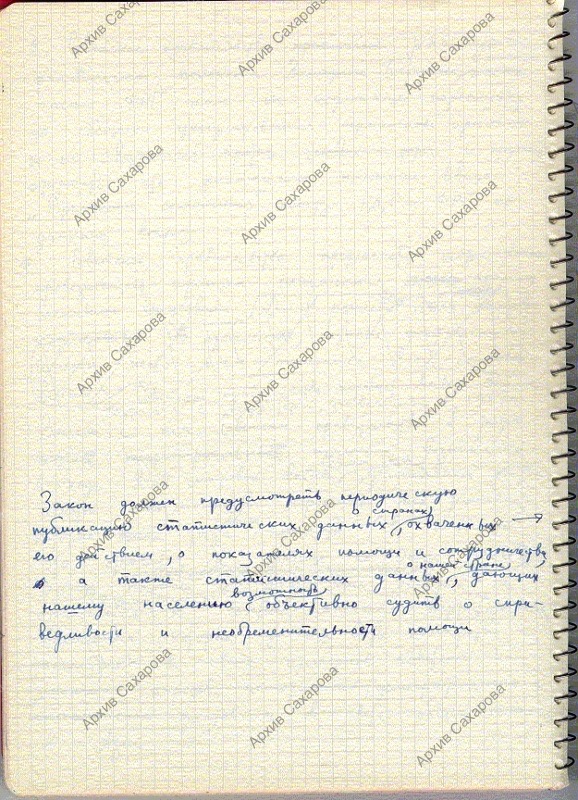 Архив Сахарова Архив Сахарова Архив Сахарова
Архив Сахарова Архив Сахарова Архив Сахарова
Архив Сахарова Архив Сахарова Архив Сахарова
Закон должен предусмотреть периодическую
о странах
публикацию статистических данных, охваченных →
его действием, о показателях помощи и сотрудничества,
о нашей стране
а также статистических данных, дающих
возможность
нашему населению объективно судить о спра-
ведливости и необременительности помощи
Архив Сахарова Архив Сахарова Архив Сахарова
Архив Сахарова Архив Сахарова Архив Сахарова